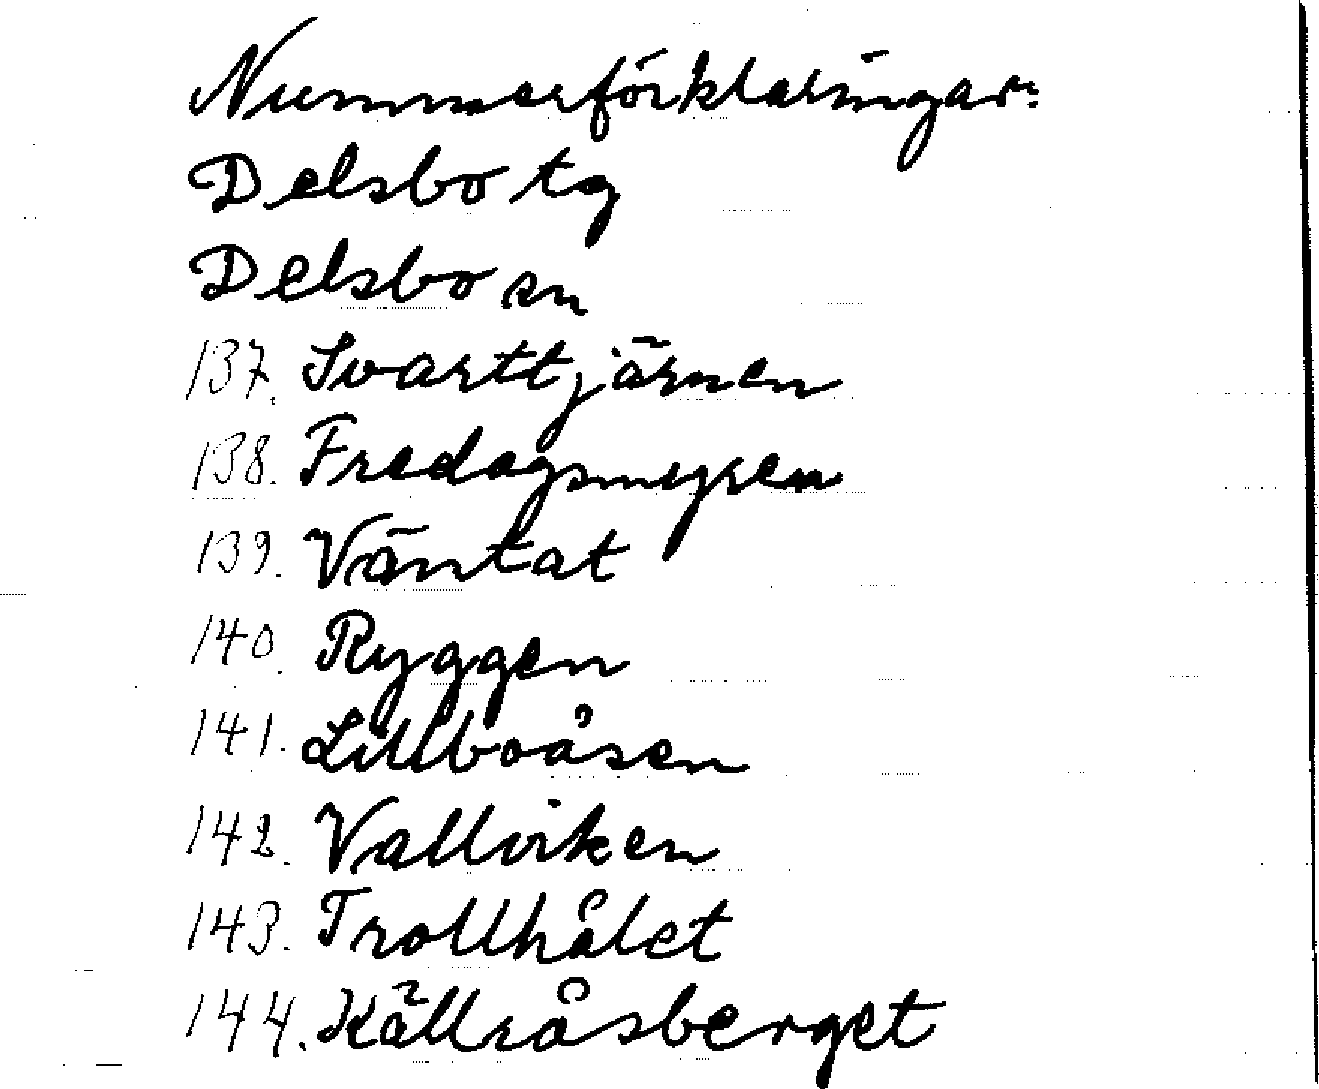 Nummerförklaringar:
Delsbo tg
Delsbo sn
137. Svarttjärnen
138. Fredagsmyren
139. Väntat
140. Ryggen
141. Lillboåsen
142. Vallviken
143. Trollhålet
144. Källråsberget